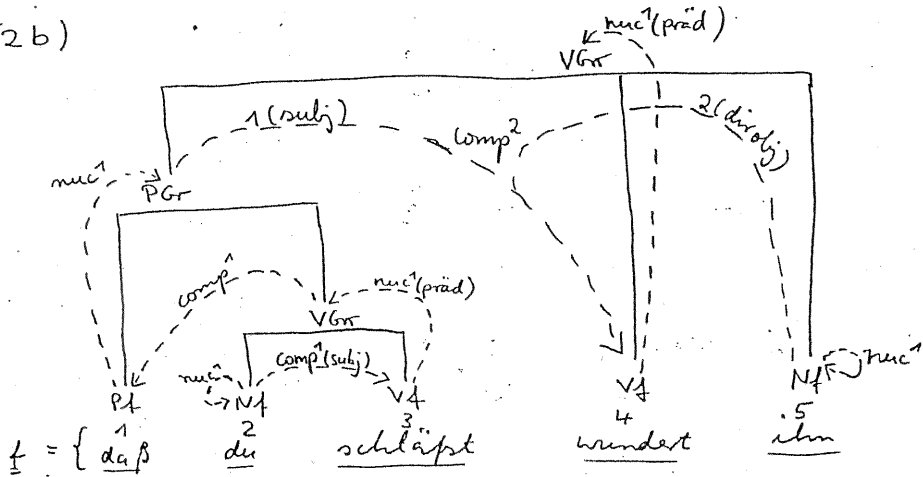 2b)
nuc¹(präd)
VGr
1(subj)
comp²
2(dirobj)
nuc¹
PGr
comp¹
nuc¹(präd)
VGr
nuc¹
comp¹(subj)
nuc¹
Pf Nf Vf Vf Nf
1 2 3 4 5
f = { daß du schläfst wundert ihn